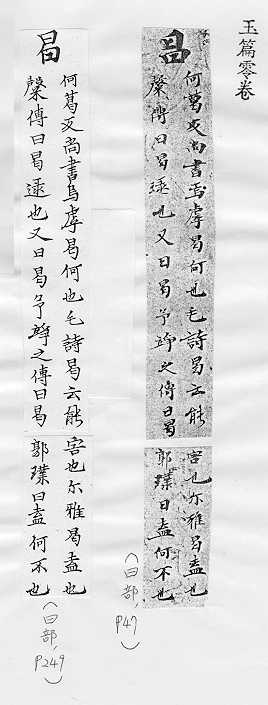 玉篇零卷
曷
何葛反尚書烏虖曷何也毛詩曷云能
穀傳曰曷逮也又曰曷予竫之傳曰曷
害也尒雅曷盍也
郭璞曰盍何不也
(曰部,P47)
曷
何葛反尚書烏虖曷何也毛詩曷云能
穀傳曰曷逮也又曰曷予竫之傳曰曷
害也尒雅曷盍也
郭璞曰盍何不也
(曰部,P249)